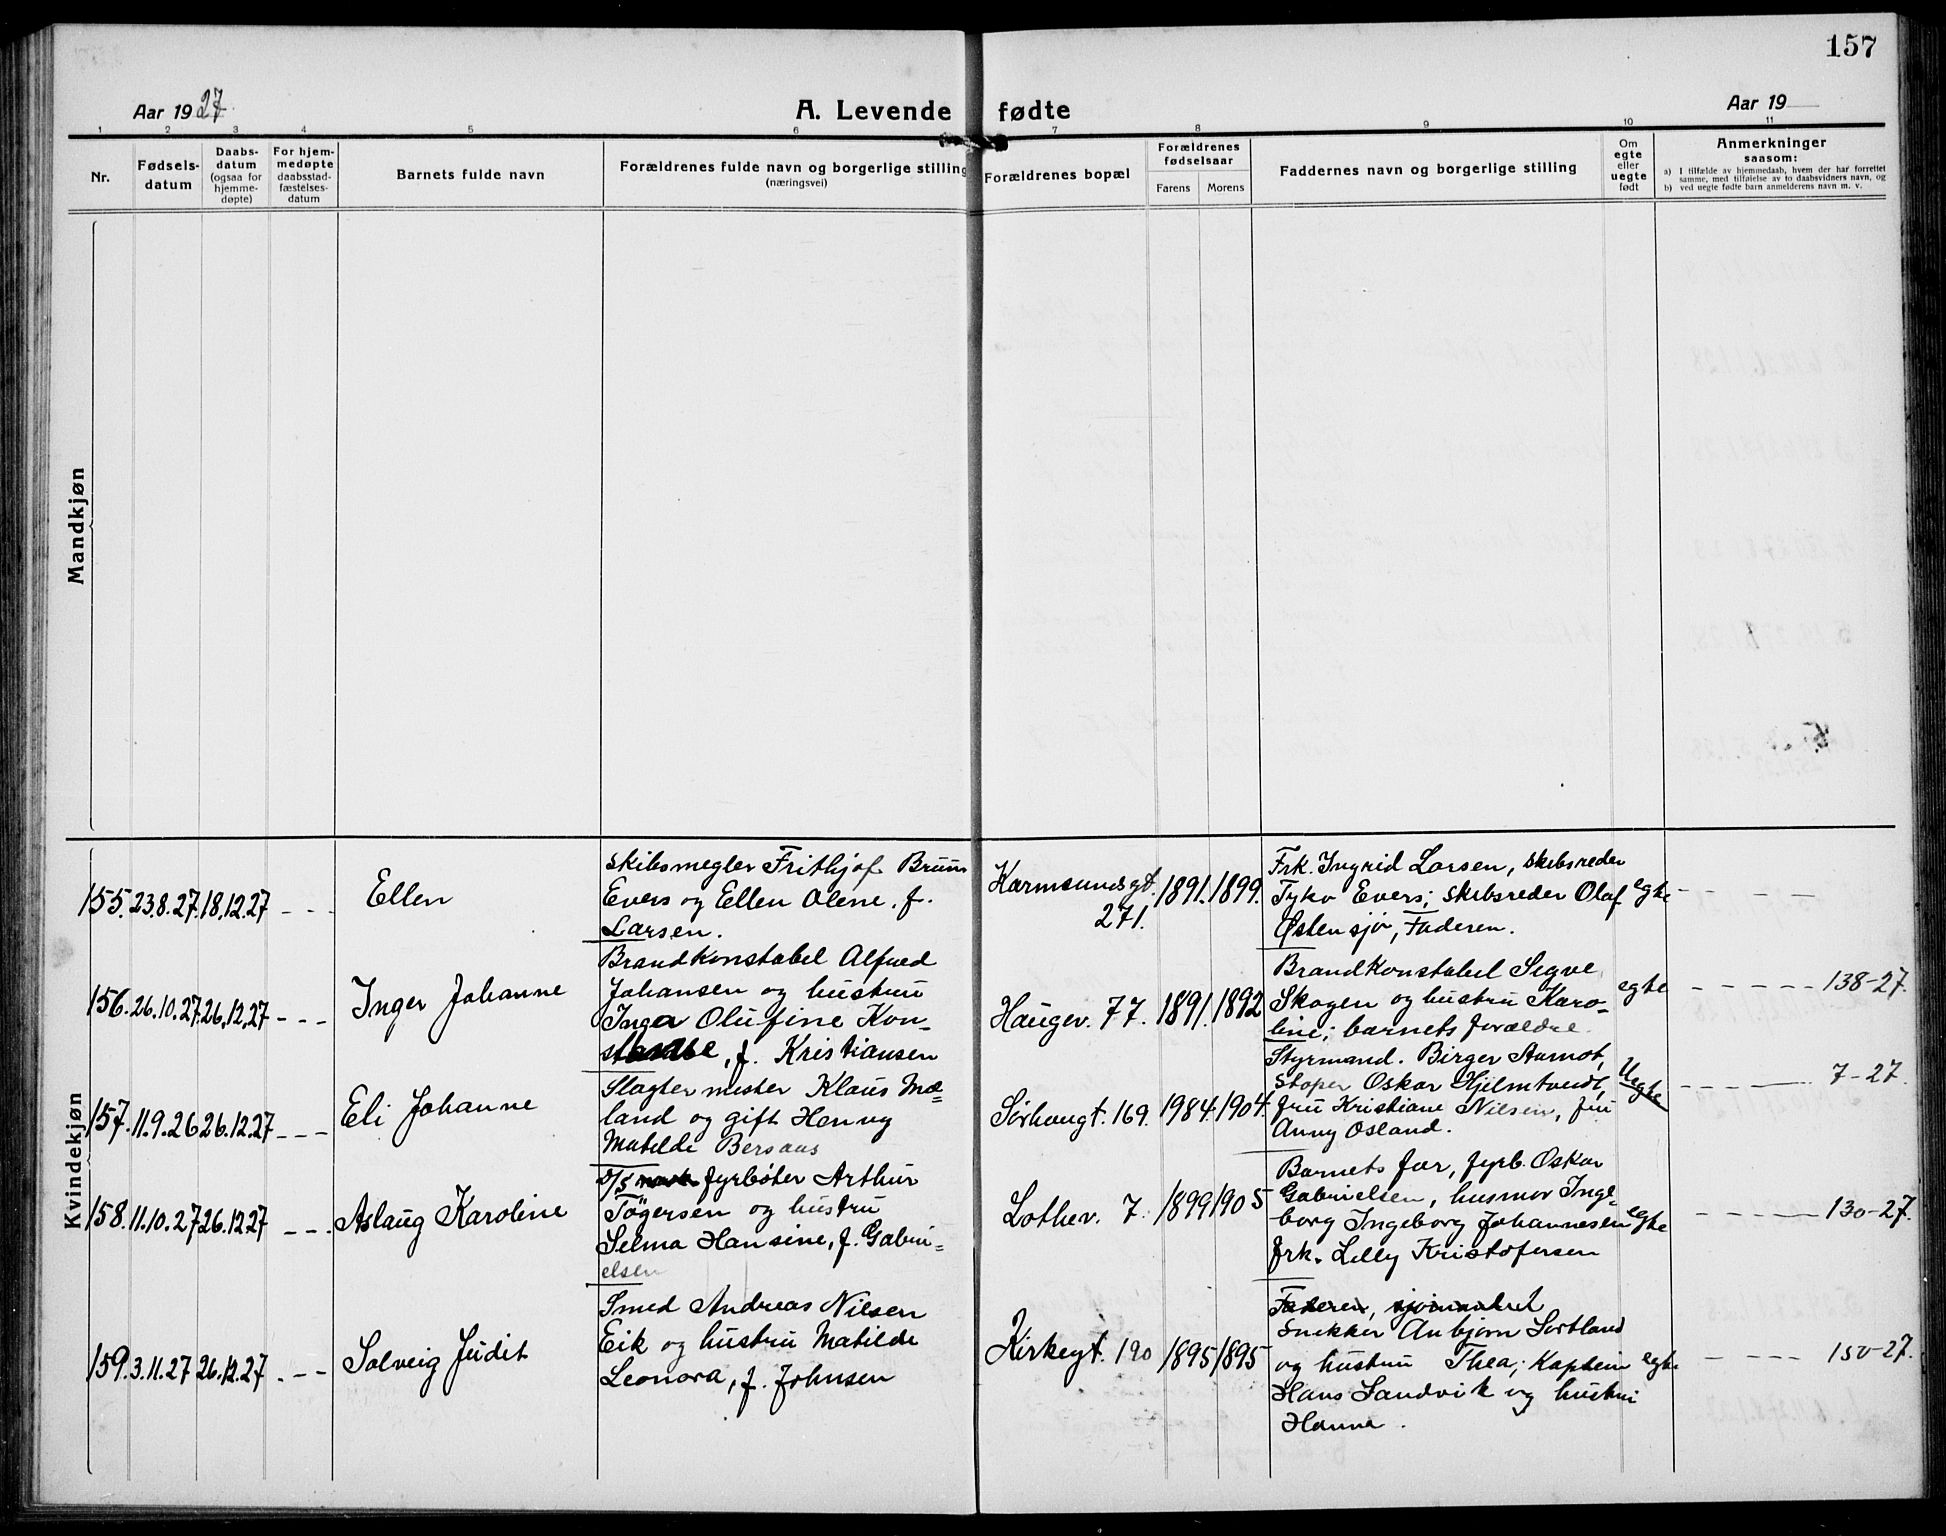 157
Aar 1927.
A. Levende fødte
Aar 19
1 2 3 4 5 6 7 8 9 10 11
Nr.
Fødsels-
datum
Daabs-
datum
(ogsaa for
hjemme-
døpte)
For hjem-
medøpte
daabsstad-
fæstelses-
datum
Barnets fulde navn
Forældrenes fulde navn og borgerlige stilling
(næringsvei)
Forældrenes bopæl
Forældrenes
fødselsaar
Farens Morens
Faddernes navn og borgerlige stilling
Om
egte
eller
uegte
født
Anmerkninger
saasom:
a) I tilfælde av hjemmedaab, hvem der har forrettet
samme, med tilføielse av to daabsvidners navn, og
b) ved uegte fødte barn anmelderens navn m. v.
Mandkjøn
Kvindekjøn
155. 23.8.27. 18.12.27 - - -
Ellen
Skibsmegler Frithjof Bruun
Evers og Ellen Olene, f.
Larsen.
Karmsundsgt.
271.
1891. 1899.
Frk. Ingrid Larsen, Skibsreder
Tyko Evers; Skibsreder Olaf
Østensjø, Faderen.
egte - - - - -
156. 26.10.27 26.12.27 - - -
Inger Johanne
Brandkonstabel Alfred
Johansen og hustru
Inga Olufine Kon-
, f. Kristiansen
Haugev. 77. 1891. 1892
Brandkonstabel Sigve
Skogen og hustru Karo-
line; barnets forældre.
egte - - - - - 138-27.
157. 11.9.26 26.12.27 - - -
Eli Johanne
Slagtermester Klaus Mæ-
land og gift Henny
Matilde Bersaas
Sørhaugt. 169. 1984. 1904.
Styrmand. Birger Aarnot,
Støper Oskar Hjelmtveidt,
fru Kristiane Nilsen, fru
Anny Osland.
Uegte - - - - - 7-27.
158. 11.10.27 26.12.27 - - -
Aslaug Karoline
fyrbøter Arthur
Tøgersen og hustru
Selma Hansine, f. Gabri-
elsen
Lothev. 7. 1899 1905
Barnets far, fyrb. Oskar
Gabrielsen, husmor Inge-
borg Ingeborg Johannesen
frk. Lilly Kristofersen
egte - - - - - 130-27.
159. 3.11.27 26.12.27 - - -
Solveig Judit
Smed Andreas Nilsen
Eik og hustru Matilde
Leonora, f. Johnsen
Kirkegt. 190 1895 1895
Faderen,
Snekker Anbjørn Sortland
og hustru Thea; Kaptein
Hans Sandvik og hustru
Hanna.
egte - - - - 150-27.